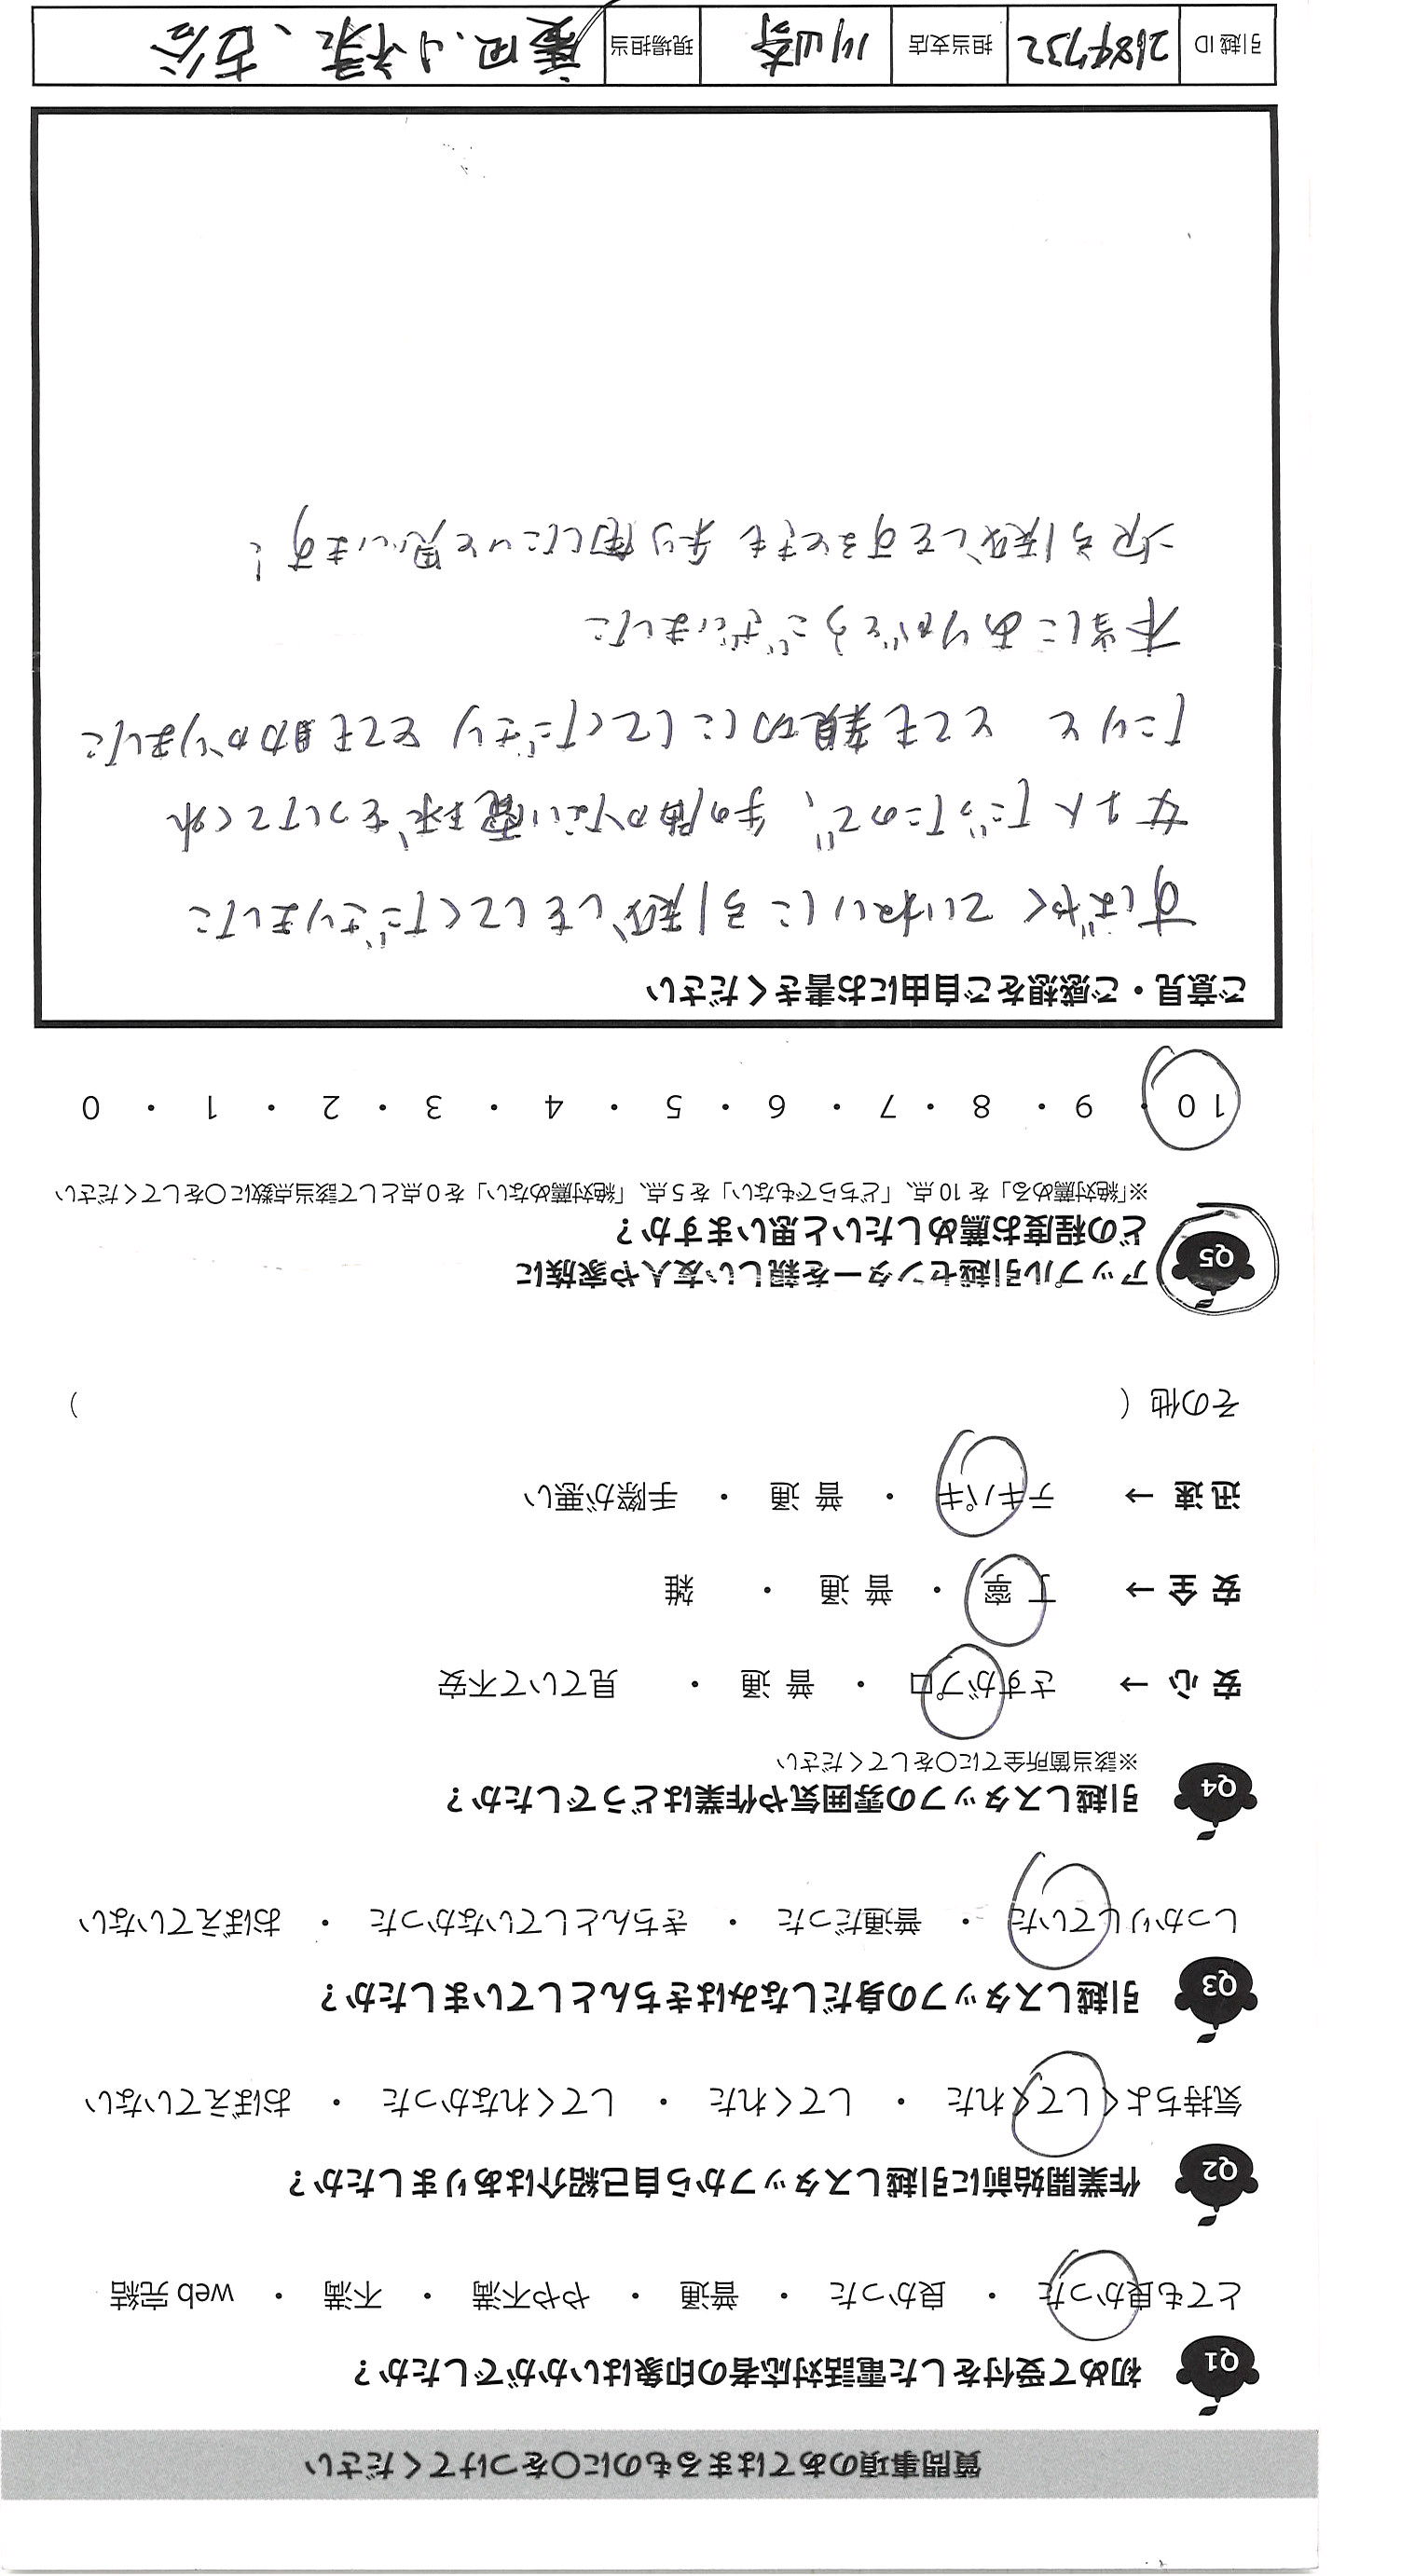 質問事項のあてはまるものに〇をつけてください
Q1 初めて受付をした電話対応者の印象はいかがでしたか？
とても良かった ・ 良かった ・ 普通 ・ やや不満 ・ 不満 ・ web 完結
Q2 作業開始前に引越しスタッフから自己紹介はありましたか？
気持ちよくしてくれた ・ してくれた ・ してくれなかった ・ おぼえていない
Q3 引越しスタッフの身だしなみはきちんとしていましたか？
しっかりしていた ・ 普通だった ・ きちんとしていなかった ・ おぼえていない
Q4 引越しスタッフの雰囲気や作業はどうでしたか？
※該当箇所全てに〇をしてください
安 心 → さすがプロ ・ 普 通 ・ 見ていて不安
安 全 → 丁 寧 ・ 普 通 ・ 雑
迅 速 → テキパキ ・ 普 通 ・ 手際が悪い
その他（ ）
Q5 アップル引越センターを親しい友人や家族に
どの程度お薦めしたいと思いますか？
※「絶対薦める」を 10 点、「どちらでもない」を 5 点、「絶対薦めない」を 0 点として該当点数に〇をしてください
10 ・ 9 ・ 8 ・ 7 ・ 6 ・ 5 ・ 4 ・ 3 ・ 2 ・ 1 ・ 0
ご意見・ご感想をご自由にお書きください
すばやく ていねいに引越しをしてくださいました
女1人だったので、手の届かない電球をつけてくれ
たりと とても親切にしてくださり とても助かりました
本当にありがとうございました
次引越しをするときも利用したいと思います！
引越 ID 2184732 担当支店 川崎 現場担当 田、小 、古谷